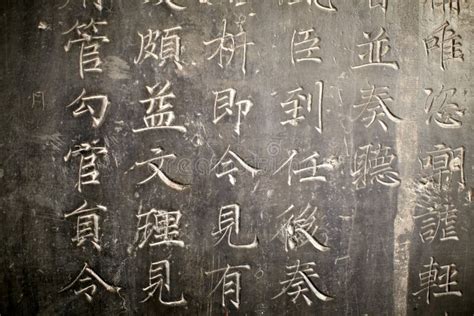 唯恣嘲謔輕
並奏聽
臣到任後奏
析即今見有
頗益文理見
管勾官員令